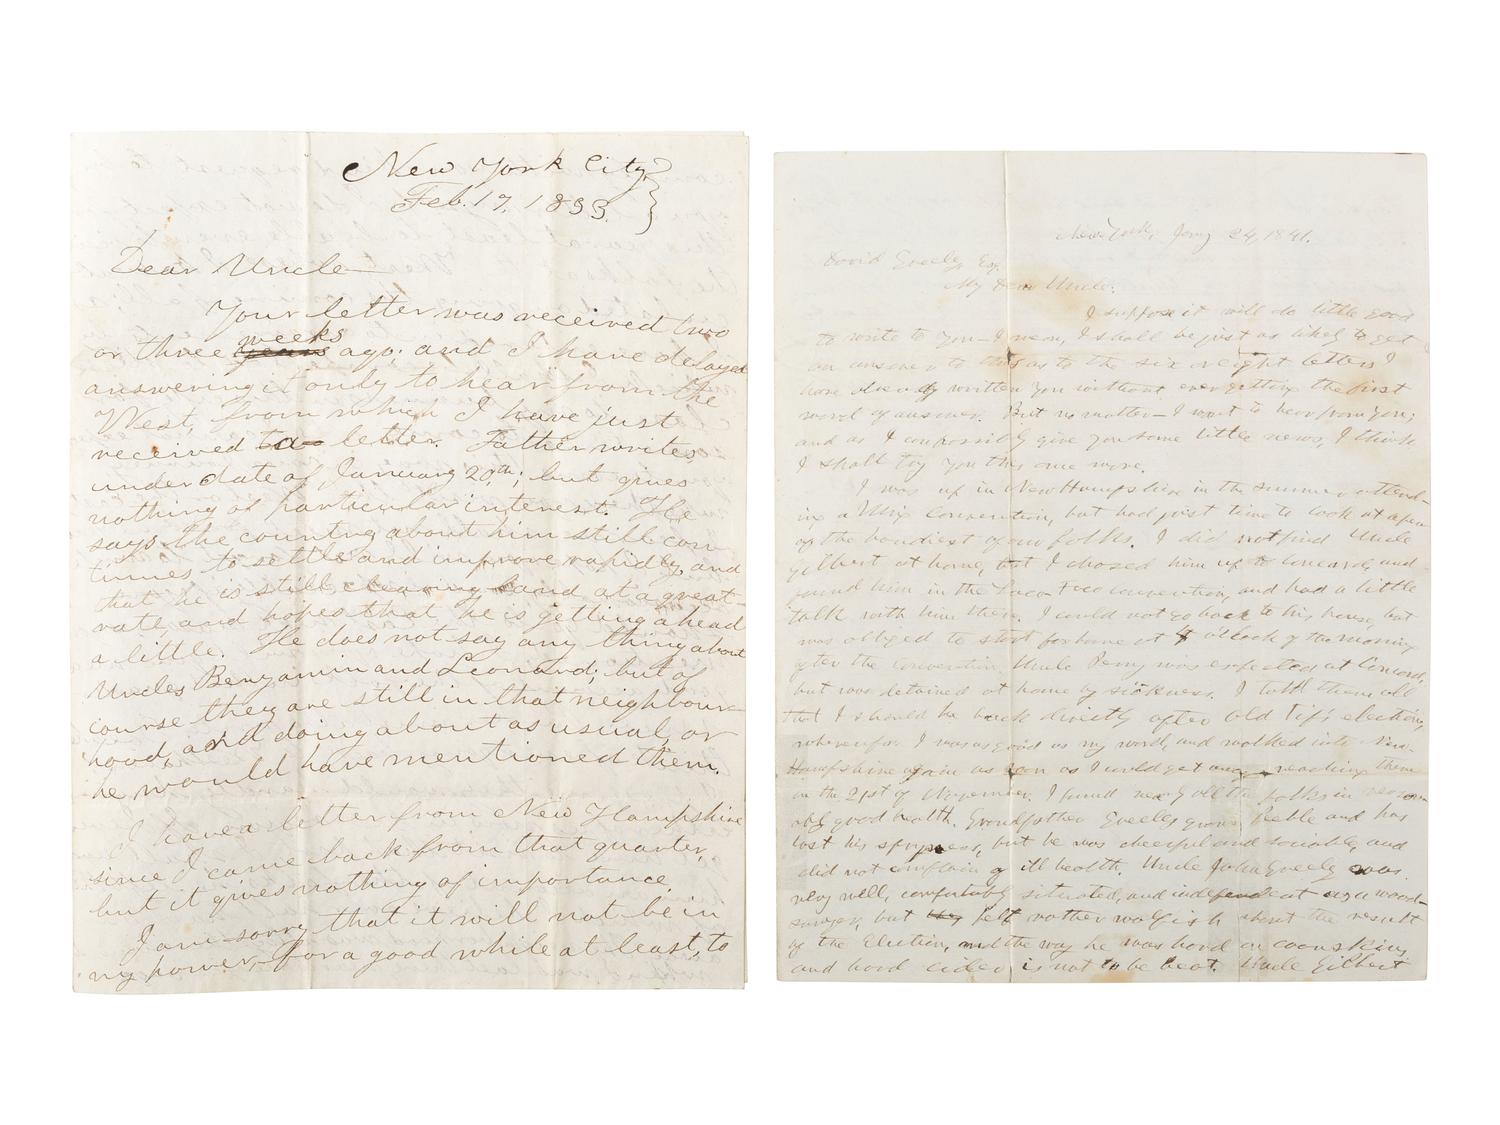 New York City
Feb. 17, 1833.
Dear Uncle
Your letter was received two
weeks
or three years ago; and I have delayed
answering it only to hear from the
West, from which I have just
received a letter. Father writes,
under date of January 20th; but gives
nothing of particular interest. He
says the country about him still con
tinues to settle and improve rapidly, and
that he is still clearing land at a great
rate and hopes that he is getting ahead
a little. He does not say any thing about
Uncles Benjamin and Leonard; but of
course they are still in that neighbour-
hood, and doing about as usual, or
he would have mentioned them.
I have a letter from New Hampshire
since I came back from that quarter,
but it gives nothing of importance.
I am sorry that it will not be in
my power, for a good while at least, to
New York, Jany 24, 1841.
David Greely, Esq.
My Dear Uncle:
I suppose it will do little good
to write to you—I mean, I shall be just as likely to get
an answer to this as to the six or eight letters I
have already written you without ever getting the first
word of answer. But no matter—I want to hear from you;
and as I can possibly give you some little news, I think
I shall try you this once more.
I was up in New Hampshire in the summer attend-
ing a Whig Convention, but had just time to look at a few
of the handiest of our folks. I did not find Uncle
Gilbert at home, but I chased him up to Concord, and
found him in the Loco-Foco convention, and had a little
talk with him there. I could not go back to his house, but
was obliged to start for home at 4 o'clock of the morning
after the Convention. Uncle Perry was expected at Concord,
but was detained at home by sickness. I told them all
that I should be back directly after old Tip's election,
wherefor I was as good as my word, and walked into New-
Hampshire again as soon as I could get away, reaching there
on the 21st of November. I found nearly all the folks in reason-
able good health. Grandfather Greeley grows feeble and has
lost his spryness, but he was cheerful and sociable, and
did not complain of ill health. Uncle John Greely was
very well, comfortably situated, and independent as a wood-
sawyer, but they felt rather wolfish about the result
of the Election, and the way he was hard on coonskins
and hard cider is not to be beat. Uncle Gilbert